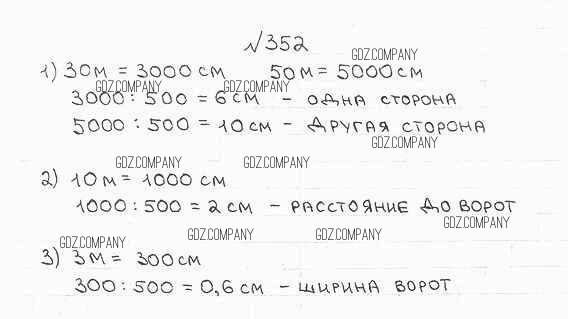 №352
GDZ.COMPANY
1) 30м = 3000 см 50м = 5000см
GDZ.COMPANY GDZ.COMPANY
3000 : 500 = 6 см - одна сторона
5000 : 500 = 10 см - другая сторона
GDZ.COMPANY
GDZ.COMPANY GDZ.COMPANY
2) 10м = 1000 см
1000 : 500 = 2 см - расстояние до ворот
GDZ.COMPANY
GDZ.COMPANY GDZ.COMPANY GDZ.COMPANY
3) 3м = 300 см
300 : 500 = 0,6 см - ширина ворот